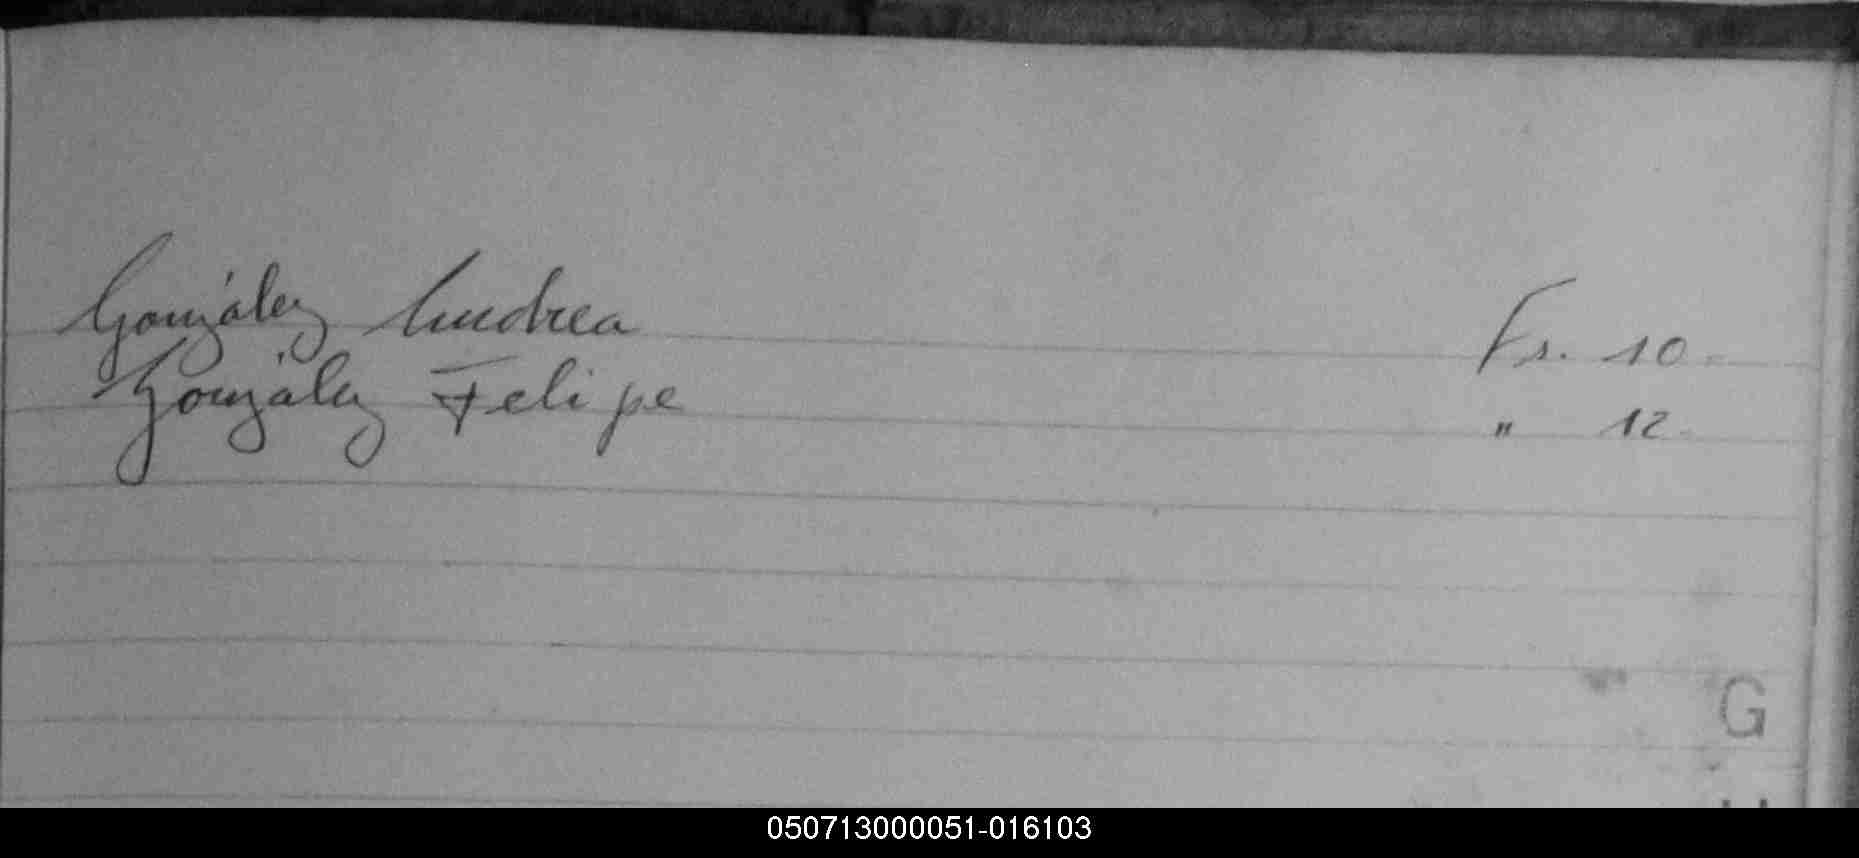 González Andrea Fs. 10.
González Felipe " 12.
G
050713000051-016103